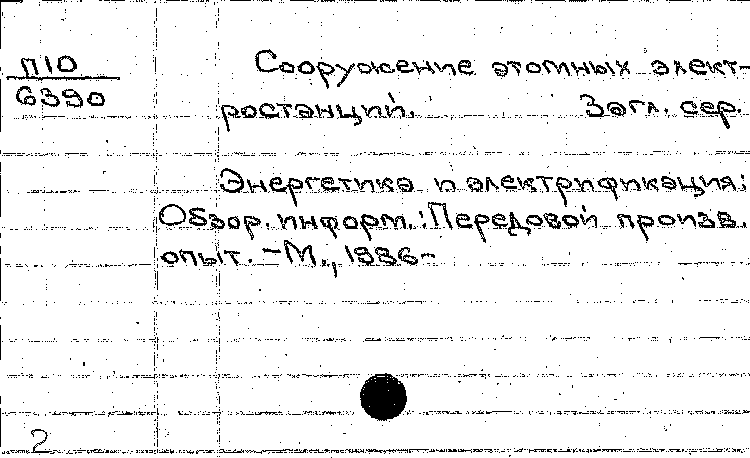 П10
6390
Сооружение атомных элект-
ростанций. Загл. сер.
Энергетика и электрификация:
Обзор. информ.: Передовой произв.
опыт. - М., 1986-
2